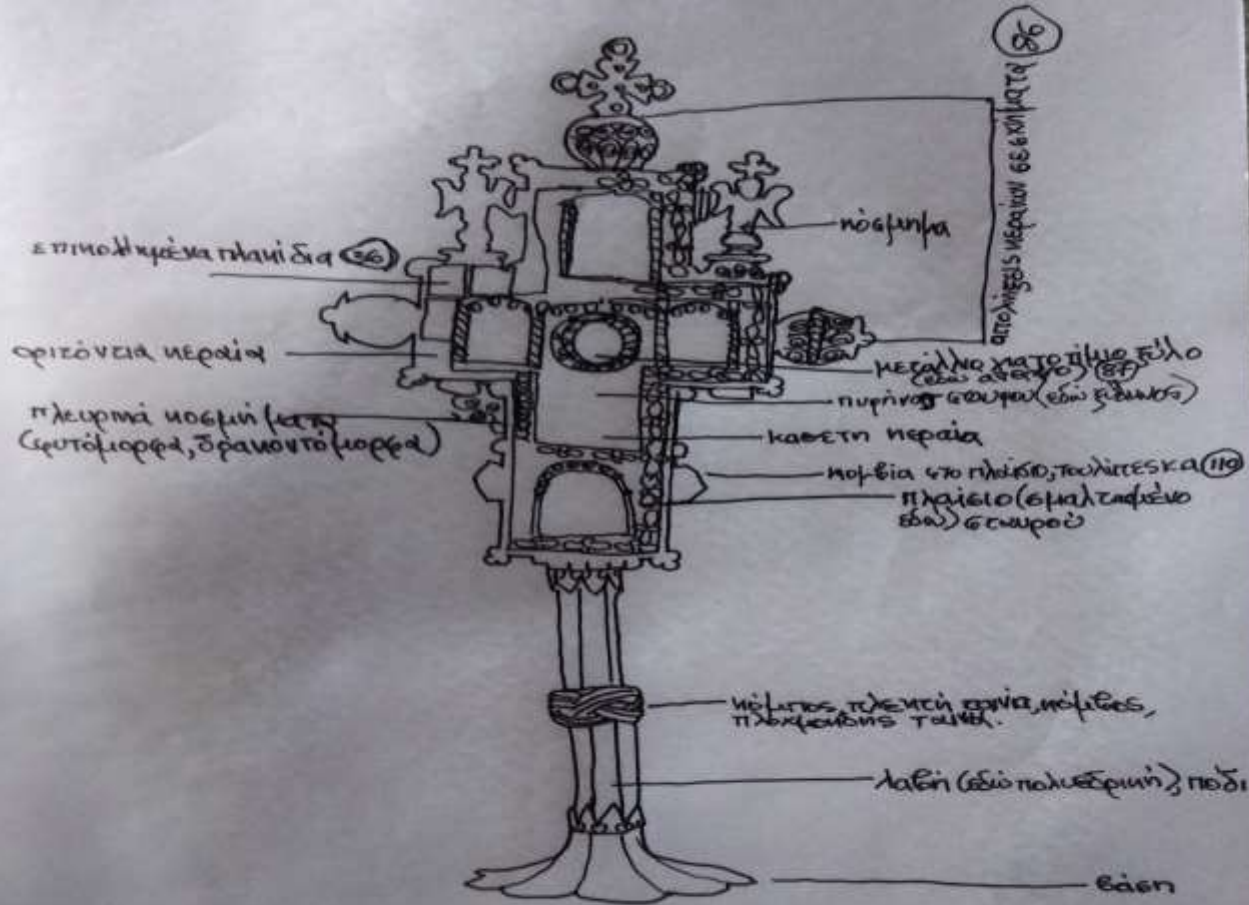 86
απολήξεις κεραιών σε σχήματα
κόσμημα
επικολλημένα πλακίδια 86
οριζόντια κεραία
πλευρικά κοσμήματα
(φυτόμορφα, δρακοντόμορφα)
μετάλλιο για το τίμιο ξύλο
(εδώ 87)
πυρήνας σταυρού (εδώ ξύλινος)
κάθετη κεραία
κομβία στο πλαίσιο, τουλίπες κ.α 110
πλαίσιο (σμαλτωμένο
εδώ) σταυρού
κόμπος, πλεκτή ταινία, κόμβος,
πλοχμοειδής ταινία.
λαβή (εδώ πολυεδρική), πόδι
βάση